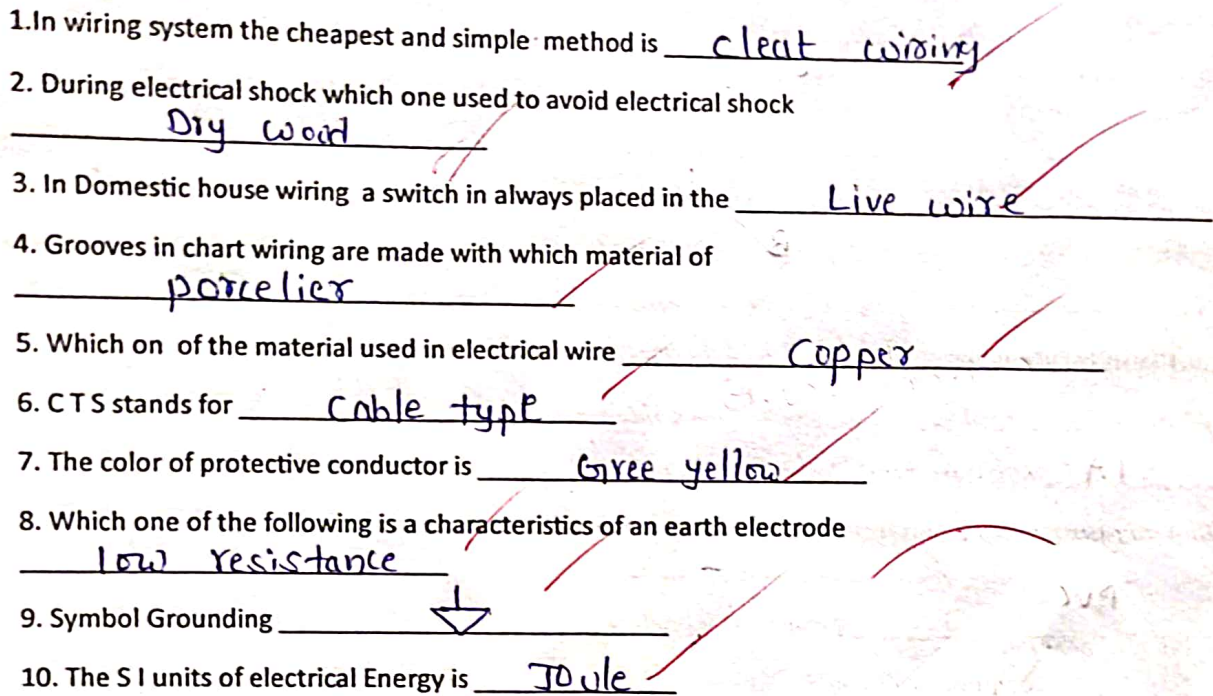 1.In wiring system the cheapest and simple method is cleat wiring
2. During electrical shock which one used to avoid electrical shock
Dry wood
3. In Domestic house wiring a switch in always placed in the Live wire
4. Grooves in chart wiring are made with which material of
porcelier
5. Which on of the material used in electrical wire copper
6. C T S stands for Cable type
7. The color of protective conductor is Gree yellow
8. Which one of the following is a characteristics of an earth electrode
low resistance
9. Symbol Grounding
10. The S I units of electrical Energy is Joule